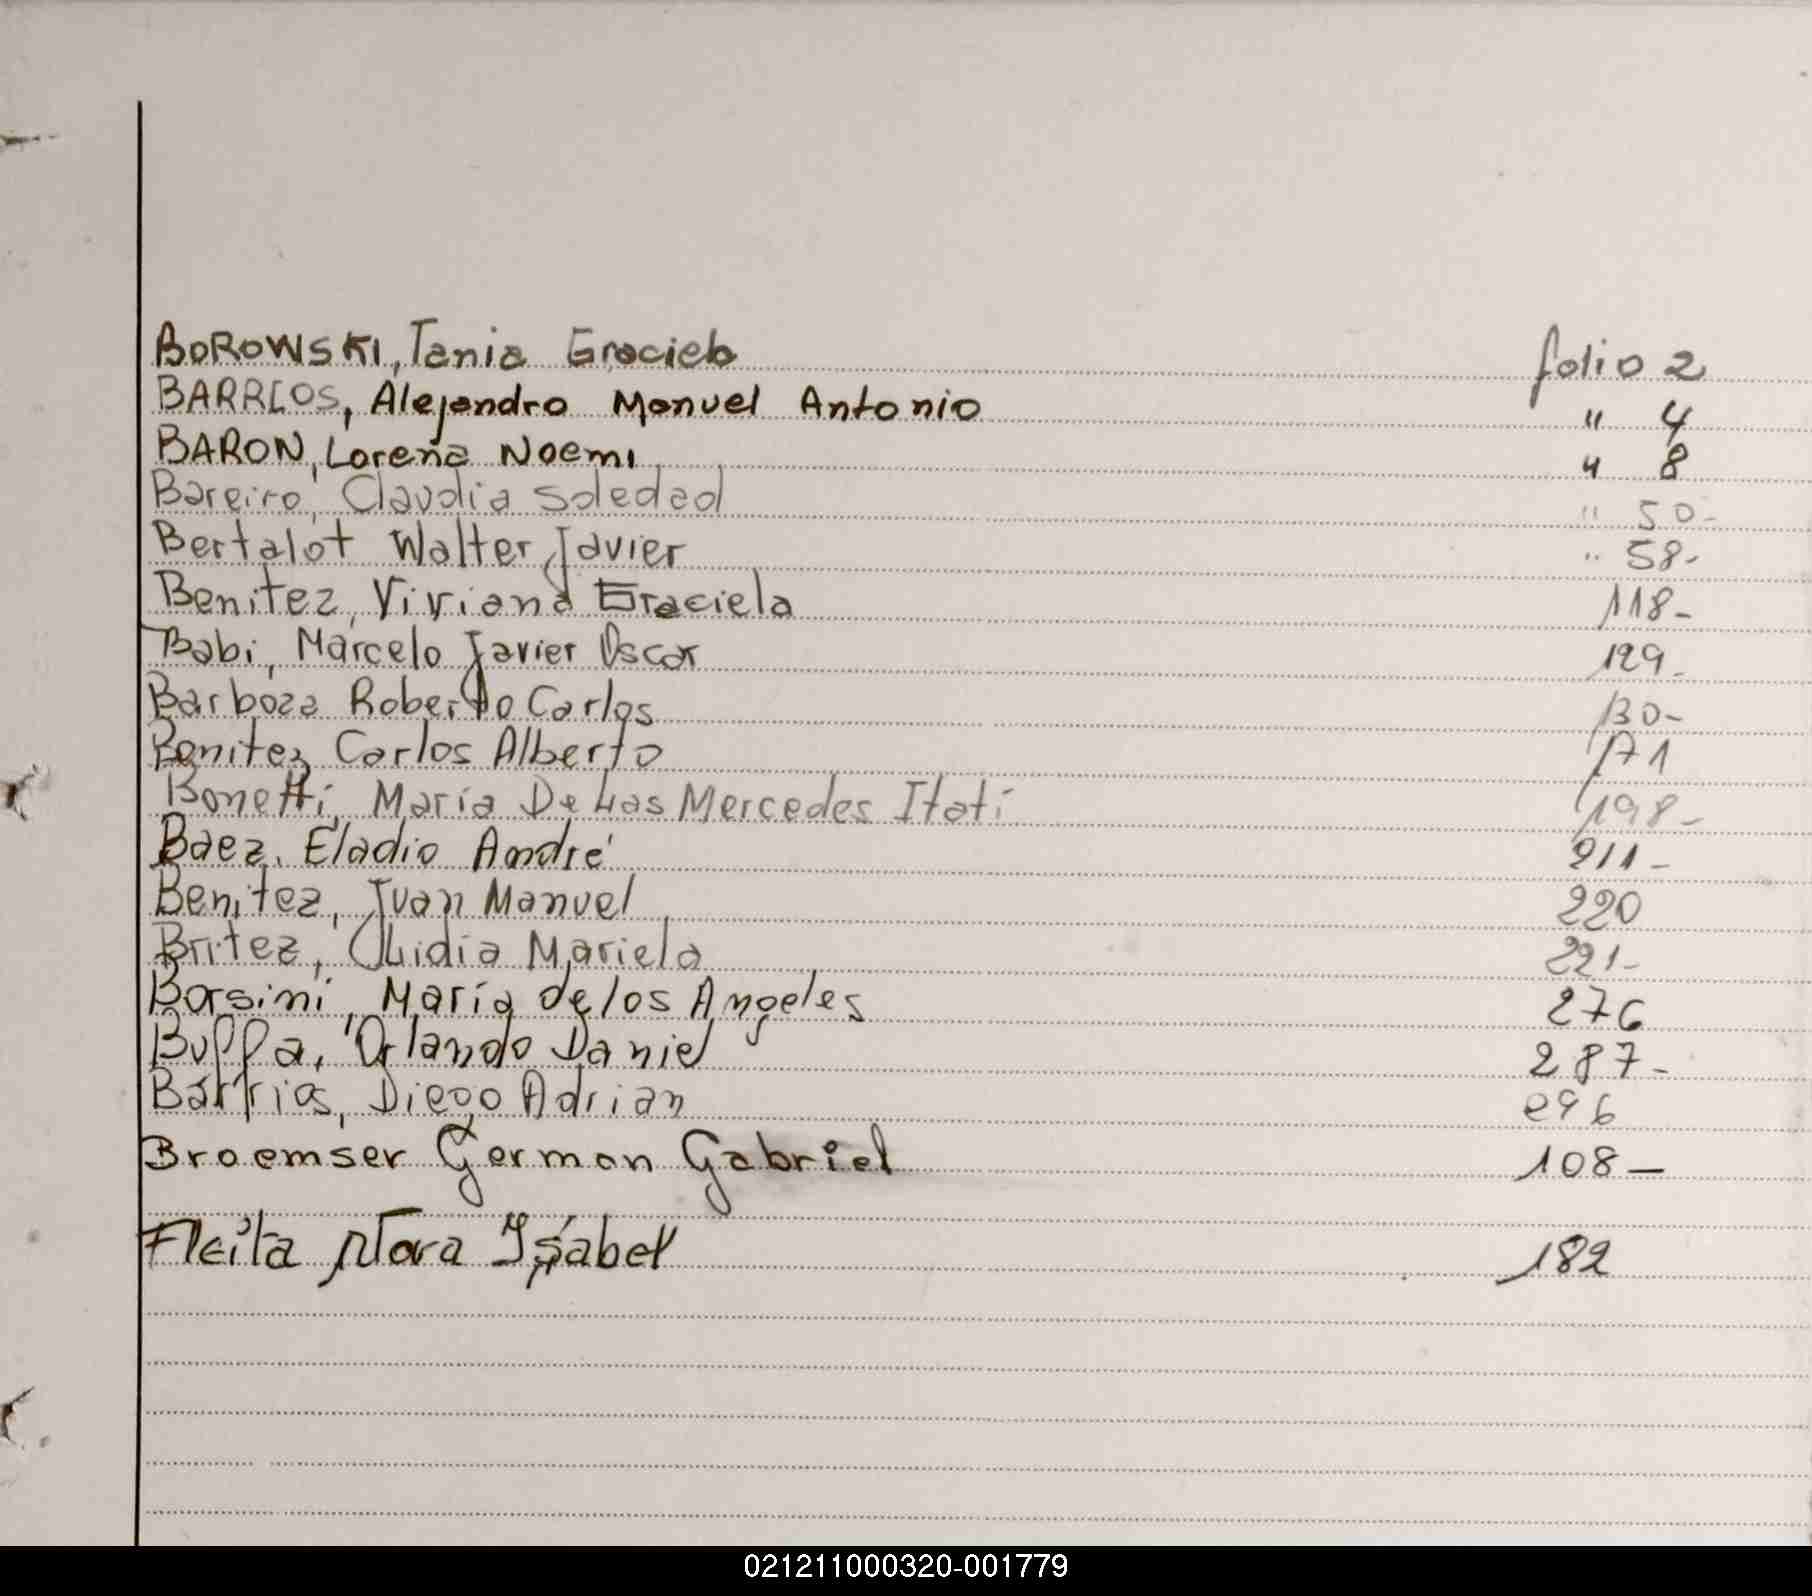 BOROWSKI, Tania Graciela folio 2
BARRIOS, Alejandro Manuel Antonio " 4
BARON, Lorena Noemi " 8
Bareiro, Claudia Soledad " 50-
Bertalot Walter Javier " 58-
Benitez, Viviana Graciela 118-
Babi, Marcelo Javier Oscar 129-
Barboza Roberto Carlos 130-
Benitez Carlos Alberto 171
Bonetti, María De Las Mercedes Itatí 198-
Baez, Eladio André 211-
Benitez, Juan Manuel 220
Britez, Lidia Mariela 221-
Borsini, María de los Angeles 276
Buffa, Orlando Daniel 287-
Barrios, Diego Adrian 296
Broemser German Gabriel 108-
Fleita Nora Isabel 182
021211000320-001779